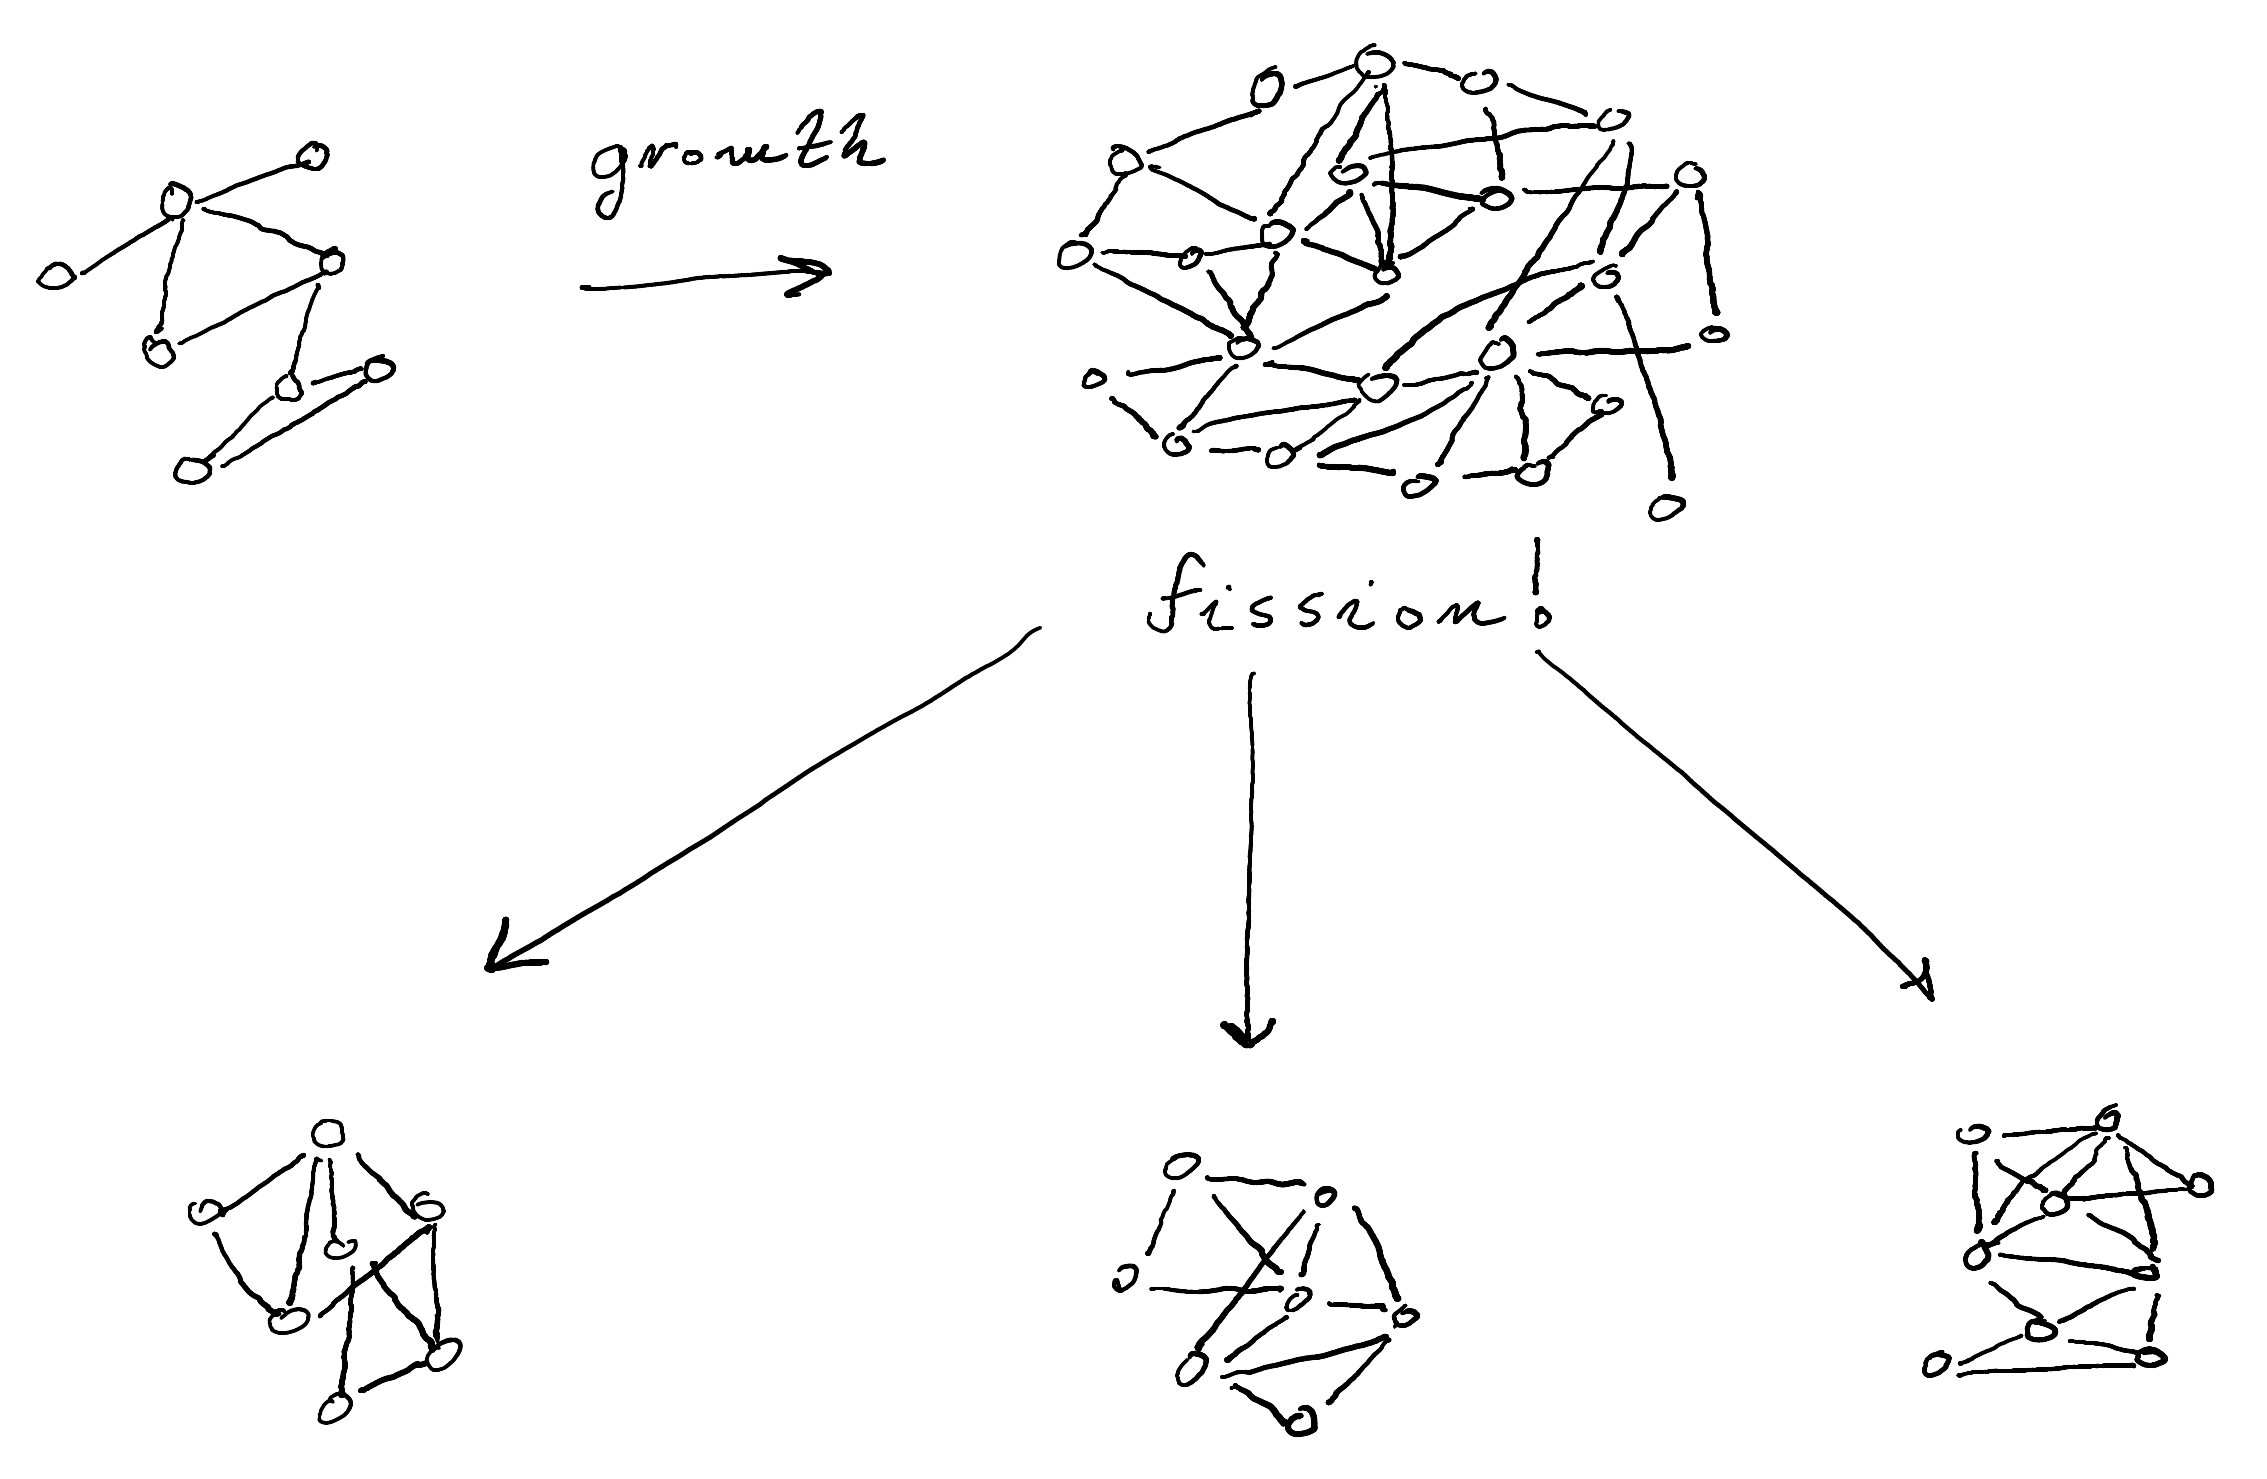 growth
fission!